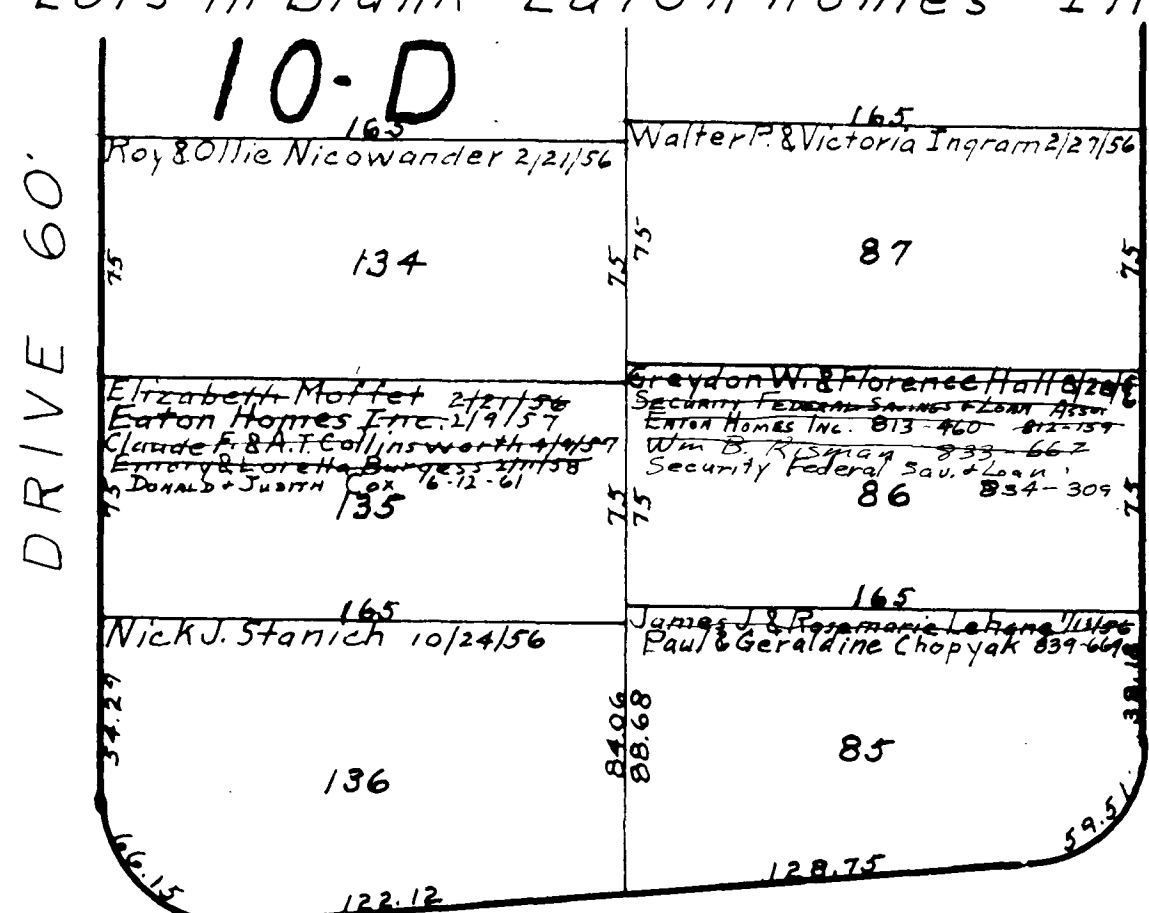 Lots in Blank Eaton Homes In
10-D
DRIVE 60'
165
Roy & Ollie Nicowander 2/21/56
75
134
75
165
Walter P. & Victoria Ingram 2/27/56
75
87
75
Elizabeth Moffet 2/21/56
Eaton Homes Inc. 2/9/57
Claude F. & A.T. Collinsworth 4/4/57
Emory & Loretta Burgess 2/11/58
DONALD + JUDITH COX 6-12-61
75
135
75
Greydon W. & Florence Hall
SECURITY FEDERAL SAVINGS & LOAN ASSN 812-159
EATON HOMES INC. 813-460
Wm B. Risman 833-667
Security Federal Sav. & Loan
834-309
75
86
75
165
Nick J. Stanich 10/24/56
54.29
136
84.06
66.15
122.12
165
James J. & Rosemarie Lehane
Paul & Geraldine Chopyak
88.68
85
59.51
128.75